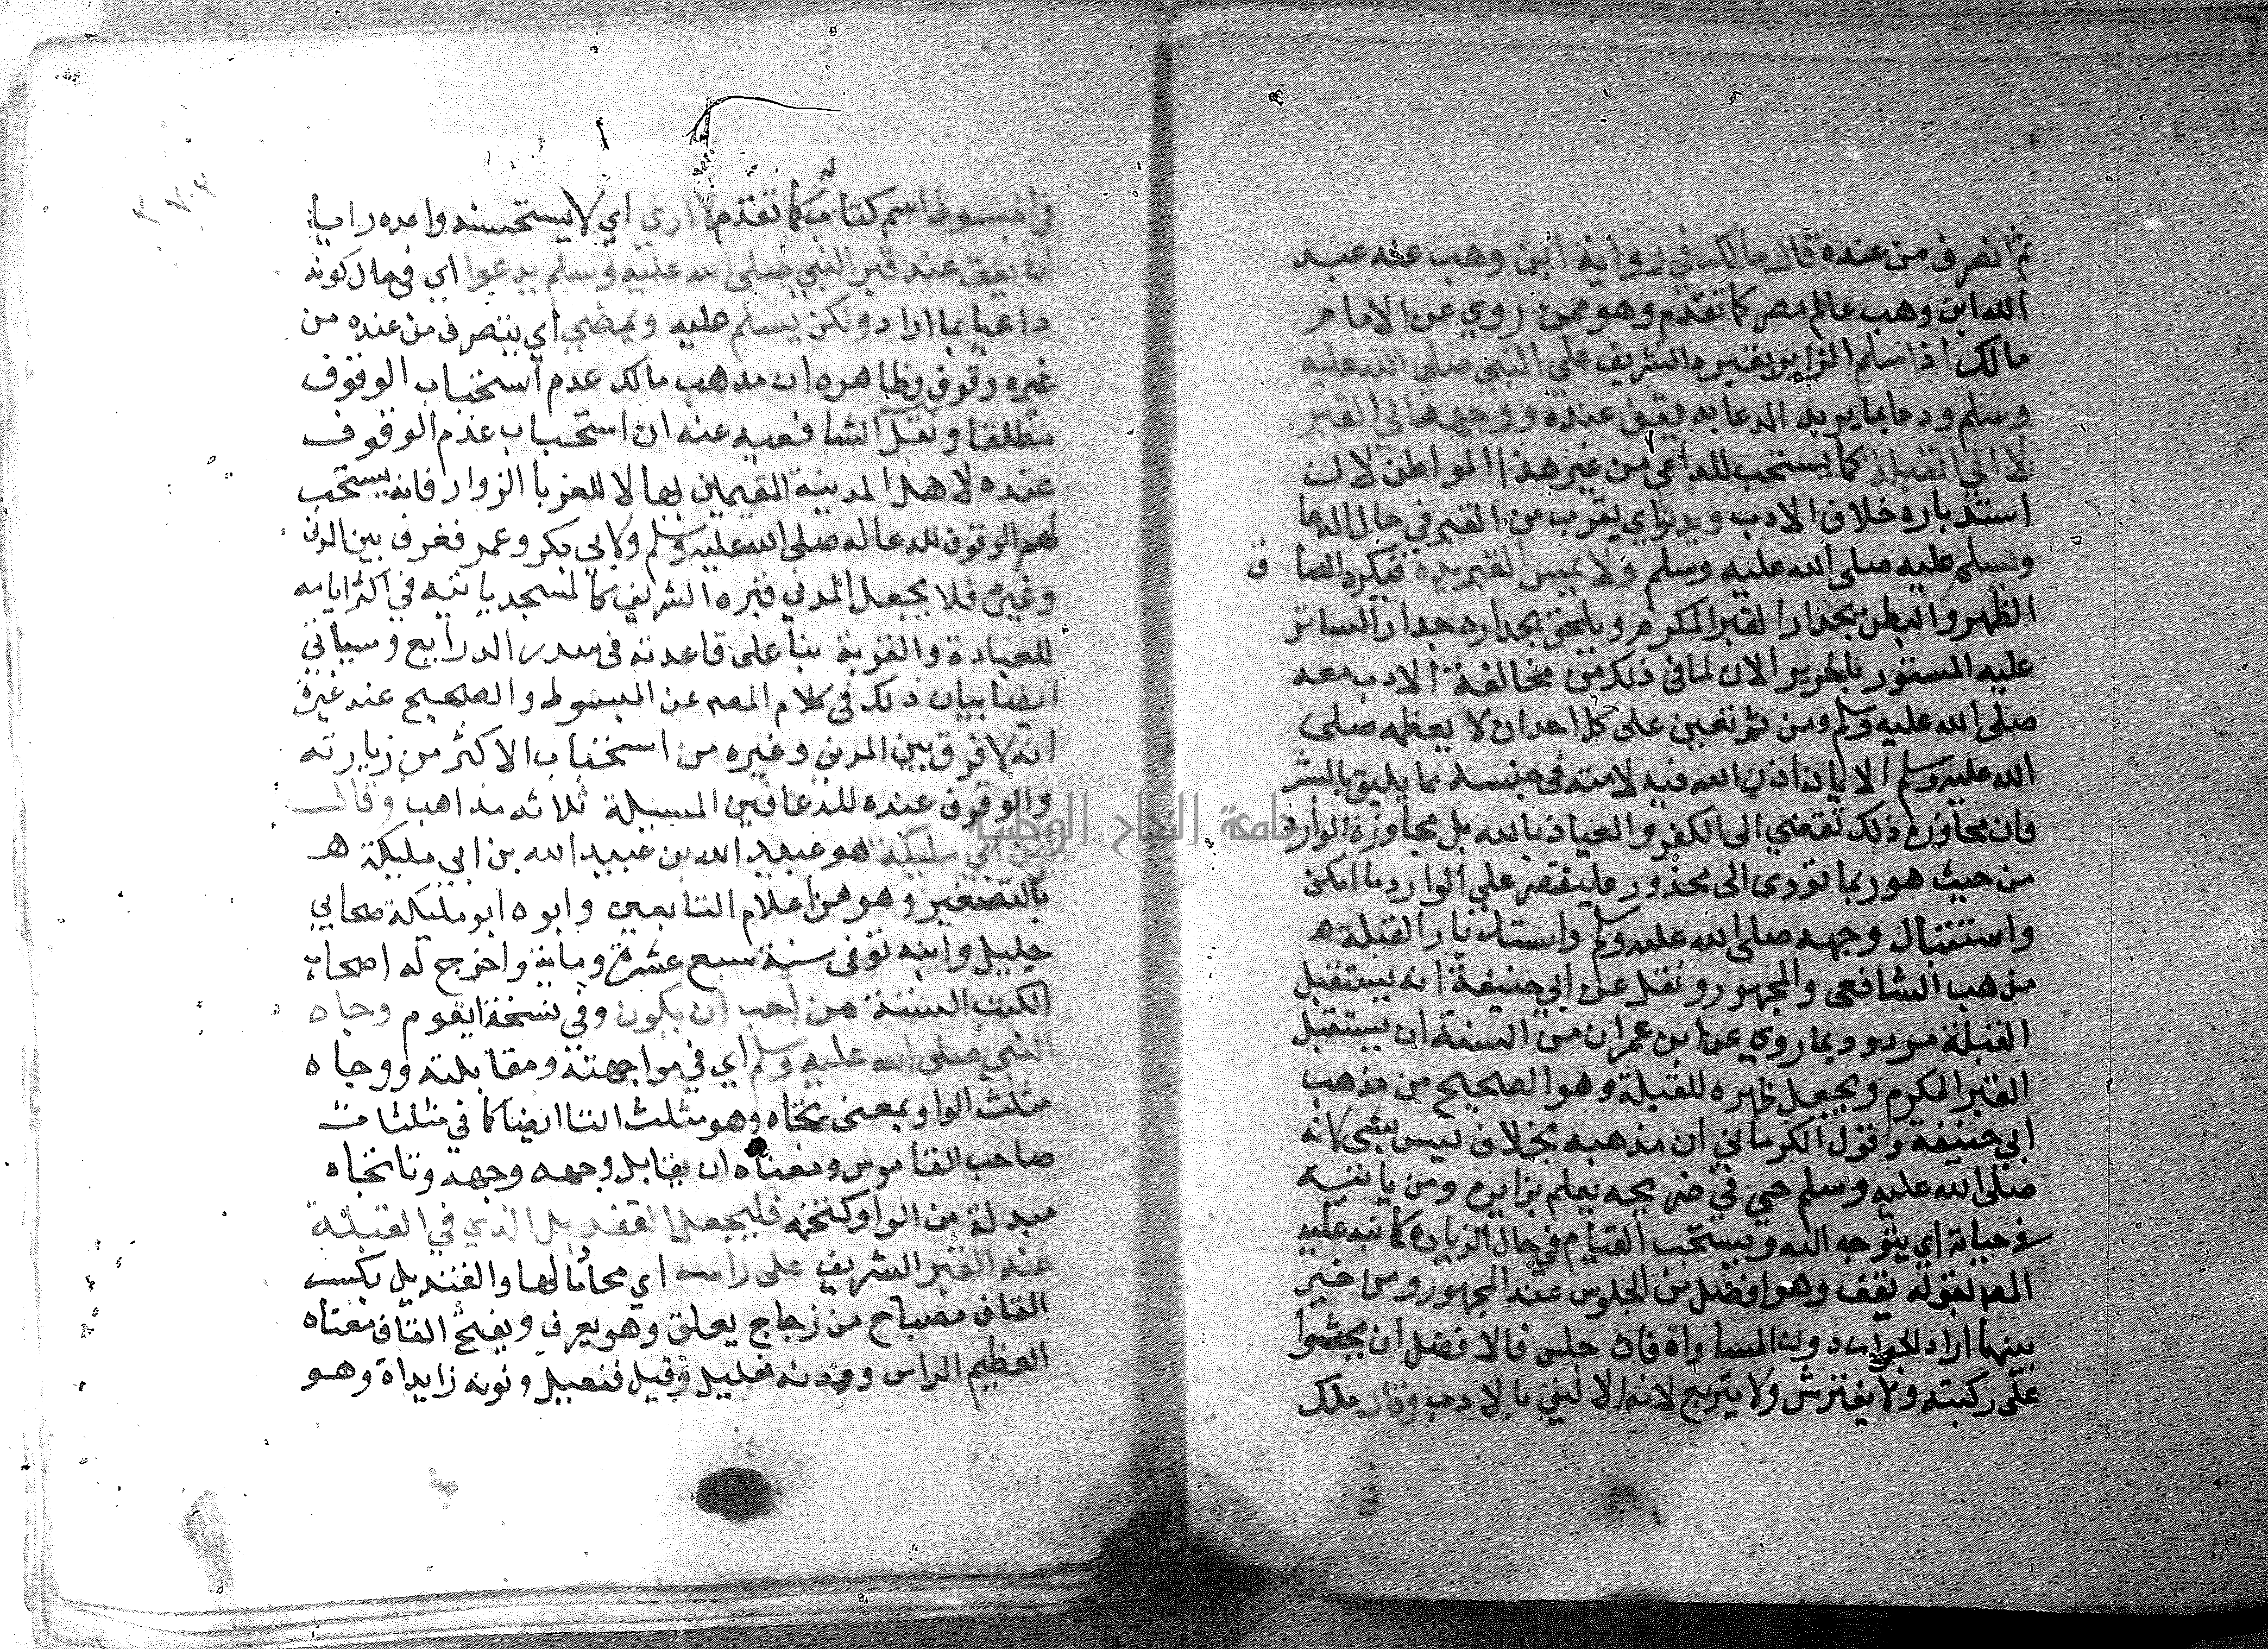 ثم انصرف من عنده قال مالك في رواية ابن وهب عنه عبد
الله ابن وهب عالم مصر كما تقدم وهو ممن روي عن الامام
مالك اذا سلم الزاير بقبره الشريف علي النبي صلي الله عليه
وسلم ودعا بما يريد الدعا به يقف عنده ووجهه الي القبر
لا الي القبلة كما يستحب للداعي من غير هذا المواطن لان
استدباره خلاف الادب ويدنو اي يقرب من القبر في حال الدعا
ويسلم عليه صلي الله عليه وسلم ولا يمس القبر بيده فيكره الصا ق
الظهر والبطن بجدار القبر المكرم ويلحق بجداره جدار الساتر
عليه المستور بالحرير الان لما في ذلك من مخالفة الادب معه
صلي الله عليه وسلم ومن ثم تعين علي كل احد ان لا يعظمه صلي
الله عليه وسلم الا بما اذن الله فيه لامته في جنسه مما يليق بالبشر
فان مجاوزة ذلك تفضي الي الكفر والعياذ بالله بل مجاوزة الوارد
من حيث هو ربما تودي الي محذور فليقتصر علي الوارد ما امكن
واستقبال وجهه صلي الله عليه وسلم واستدبار القبلة ه
مذهب الشافعي والجمهور ونقل عن ابي حنيفة انه يستقبل
القبلة مردود بما روي عن ابن عمر ان من السنة ان يستقبل
القبر المكرم ويجعل ظهره للقبلة وهو الصحيح من مذهب
ابي حنيفة وقول الكرماني ان مذهبه بخلاف ليس بشي لانه
صلي الله عليه وسلم حي في ضريحه يعلم بزايره ومن ياتيه
في حياته اي يتوجه اليه ويستحب القيام في حال الزيارة كما نبه عليه
المص بقوله يقف وهو افضل من الجلوس عند الجمهور ومن خير
بينهما اراد الجواب دون المساواة فان جلس فالافضل ان يجثوا
علي ركبته ولا يفترش ولا يتربع لانه الاليق بالادب وقال ملك
في
في المبسوط اسم كتاب له كما تقدم لا اري اي لا يستحسنه واعده رايا
ان يقف عند قبر النبي صلي الله عليه وسلم يدعوا اي في حال كونه
داعيا بما اراد ولكن يسلم عليه ويمضي اي ينصرف من عنده من
غيره وقوف وظاهره ان مذهب مالك عدم استحباب الوقوف
مطلقا ونقل الشافعيه عنه ان استحباب عدم الوقوف
عنده لاهل المدينة المقيمين بها لا للغربا الزوار فانه يستحب
لهم الوقوف للدعا له صلي الله عليه وسلم ولابي بكر وعمر ففرق بين المدني
وغيره فلا يجعل المدني قبره الشريف كالمسجد ياتيه في اكثر ايامه
للعبادة والقربة بنا علي قاعدته في سد الذرايع وسياتي
ايضا بيان ذلك في كلام المص عن المبسوط والصحيح عند غيره
انه لا فرق بين المدني وغيره من استحباب الاكثر من زيارته
والوقوف عنده للدعا ففي المسيلة ثلاثه مذاهب وقال
ابن ابي مليكة هو عبيد الله بن عبيد الله بن ابي مليكة ه
بالتصغير وهو من اعلام التابعين وابوه ابو مليكة صحابي
جليل وابنه توفي سنة سبع عشرة وماية واخرج له اصحاب
الكتب الستة من احب ان يكون وفي نسخة ايقوم وجاه
النبي صلي الله عليه وسلم اي في مواجهته ومقابلته ووجاه
مثلث الواو بمعني تجاه وهو مثلث التا ايضا كما في مثلثات
صاحب القاموس ومعناه ان يقابل وجهه وجهه وتا تجاه
مبدلة من الواو كتخمه فليجعل القنديل الذي في القبلة
عند القبر الشريف علي راسه اي محاذيا لها والقنديل بكسر
القاف مصباح من زجاج يعلق وهو يعرف وبفتح القاف معناه
العظيم الراس ووزنه فعليل وقيل فنعيل ونونه زايداة وهو
جامعة النجاح الوطنية